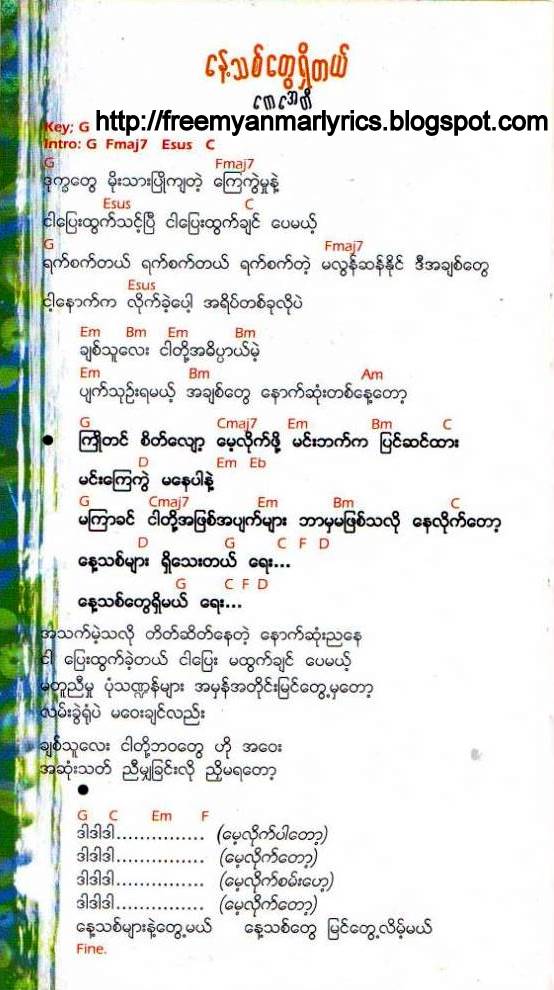 နေ့သစ်တွေရှိတယ်
ကအေတီ
Key; G http://freemyanmarlyrics.blogspot.com
Intro: G Fmaj7 Esus C
G Fmaj7
ဒုက္ခတွေ မိုးသားပြိုကျတဲ့ ကြေကွဲမှုနဲ့
Esus C
ငါပြေးထွက်သင့်ပြီ ငါပြေးထွက်ချင် ပေမယ့်
G Fmaj7
ရက်စက်တယ် ရက်စက်တယ် ရက်စက်တဲ့ မလွန်ဆန်နိုင် ဒီအချစ်တွေ
Esus
ငါ့နောက်က လိုက်ခဲ့ပေါ့ အရိပ်တစ်ခုလိုပဲ
Em Bm Em Bm
ချစ်သူလေး ငါတို့အဓိပ္ပာယ်မဲ့
Em Bm Am
ပျက်သုဉ်းရမယ့် အချစ်တွေ နောက်ဆုံးတစ်နေ့တော့
G Cmaj7 Em Bm C
● ကြိုတင် စိတ်လျော့ မေ့လိုက်ဖို့ မင်းဘက်က ပြင်ဆင်ထား
D Em Eb
မင်းကြေကွဲ မနေပါနဲ့
G Cmaj7 Em Bm C
မကြာခင် ငါတို့အဖြစ်အပျက်များ ဘာမှမဖြစ်သလို နေလိုက်တော့
D G C F D
နေ့သစ်များ ရှိသေးတယ် ရေး...
G C F D
နေ့သစ်တွေရှိမယ် ရေး...
အသက်မဲ့သလို တိတ်ဆိတ်နေတဲ့ နောက်ဆုံးညနေ
ငါ ပြေးထွက်ခဲ့တယ် ငါပြေး မထွက်ချင် ပေမယ့်
မတူညီမှု ပုံသဏ္ဌာန်များ အမှန်အတိုင်းမြင်တွေ့မှတော့
လမ်းခွဲရုံပဲ မဝေးချင်လည်း
ချစ်သူလေး ငါတို့ဘဝတွေ ဟို အဝေး
အဆုံးသတ် ညီမျှခြင်းလို ညှိမရတော့
●
G C Em F
ဒါဒါဒါ............... (မေ့လိုက်ပါတော့)
ဒါဒါဒါ............... (မေ့လိုက်တော့)
ဒါဒါဒါ............... (မေ့လိုက်စမ်းဟေ့)
ဒါဒါဒါ............... (မေ့လိုက်တော့)
နေ့သစ်များနဲ့တွေ့မယ် နေ့သစ်တွေ မြင်တွေ့လိမ့်မယ်
Fine.